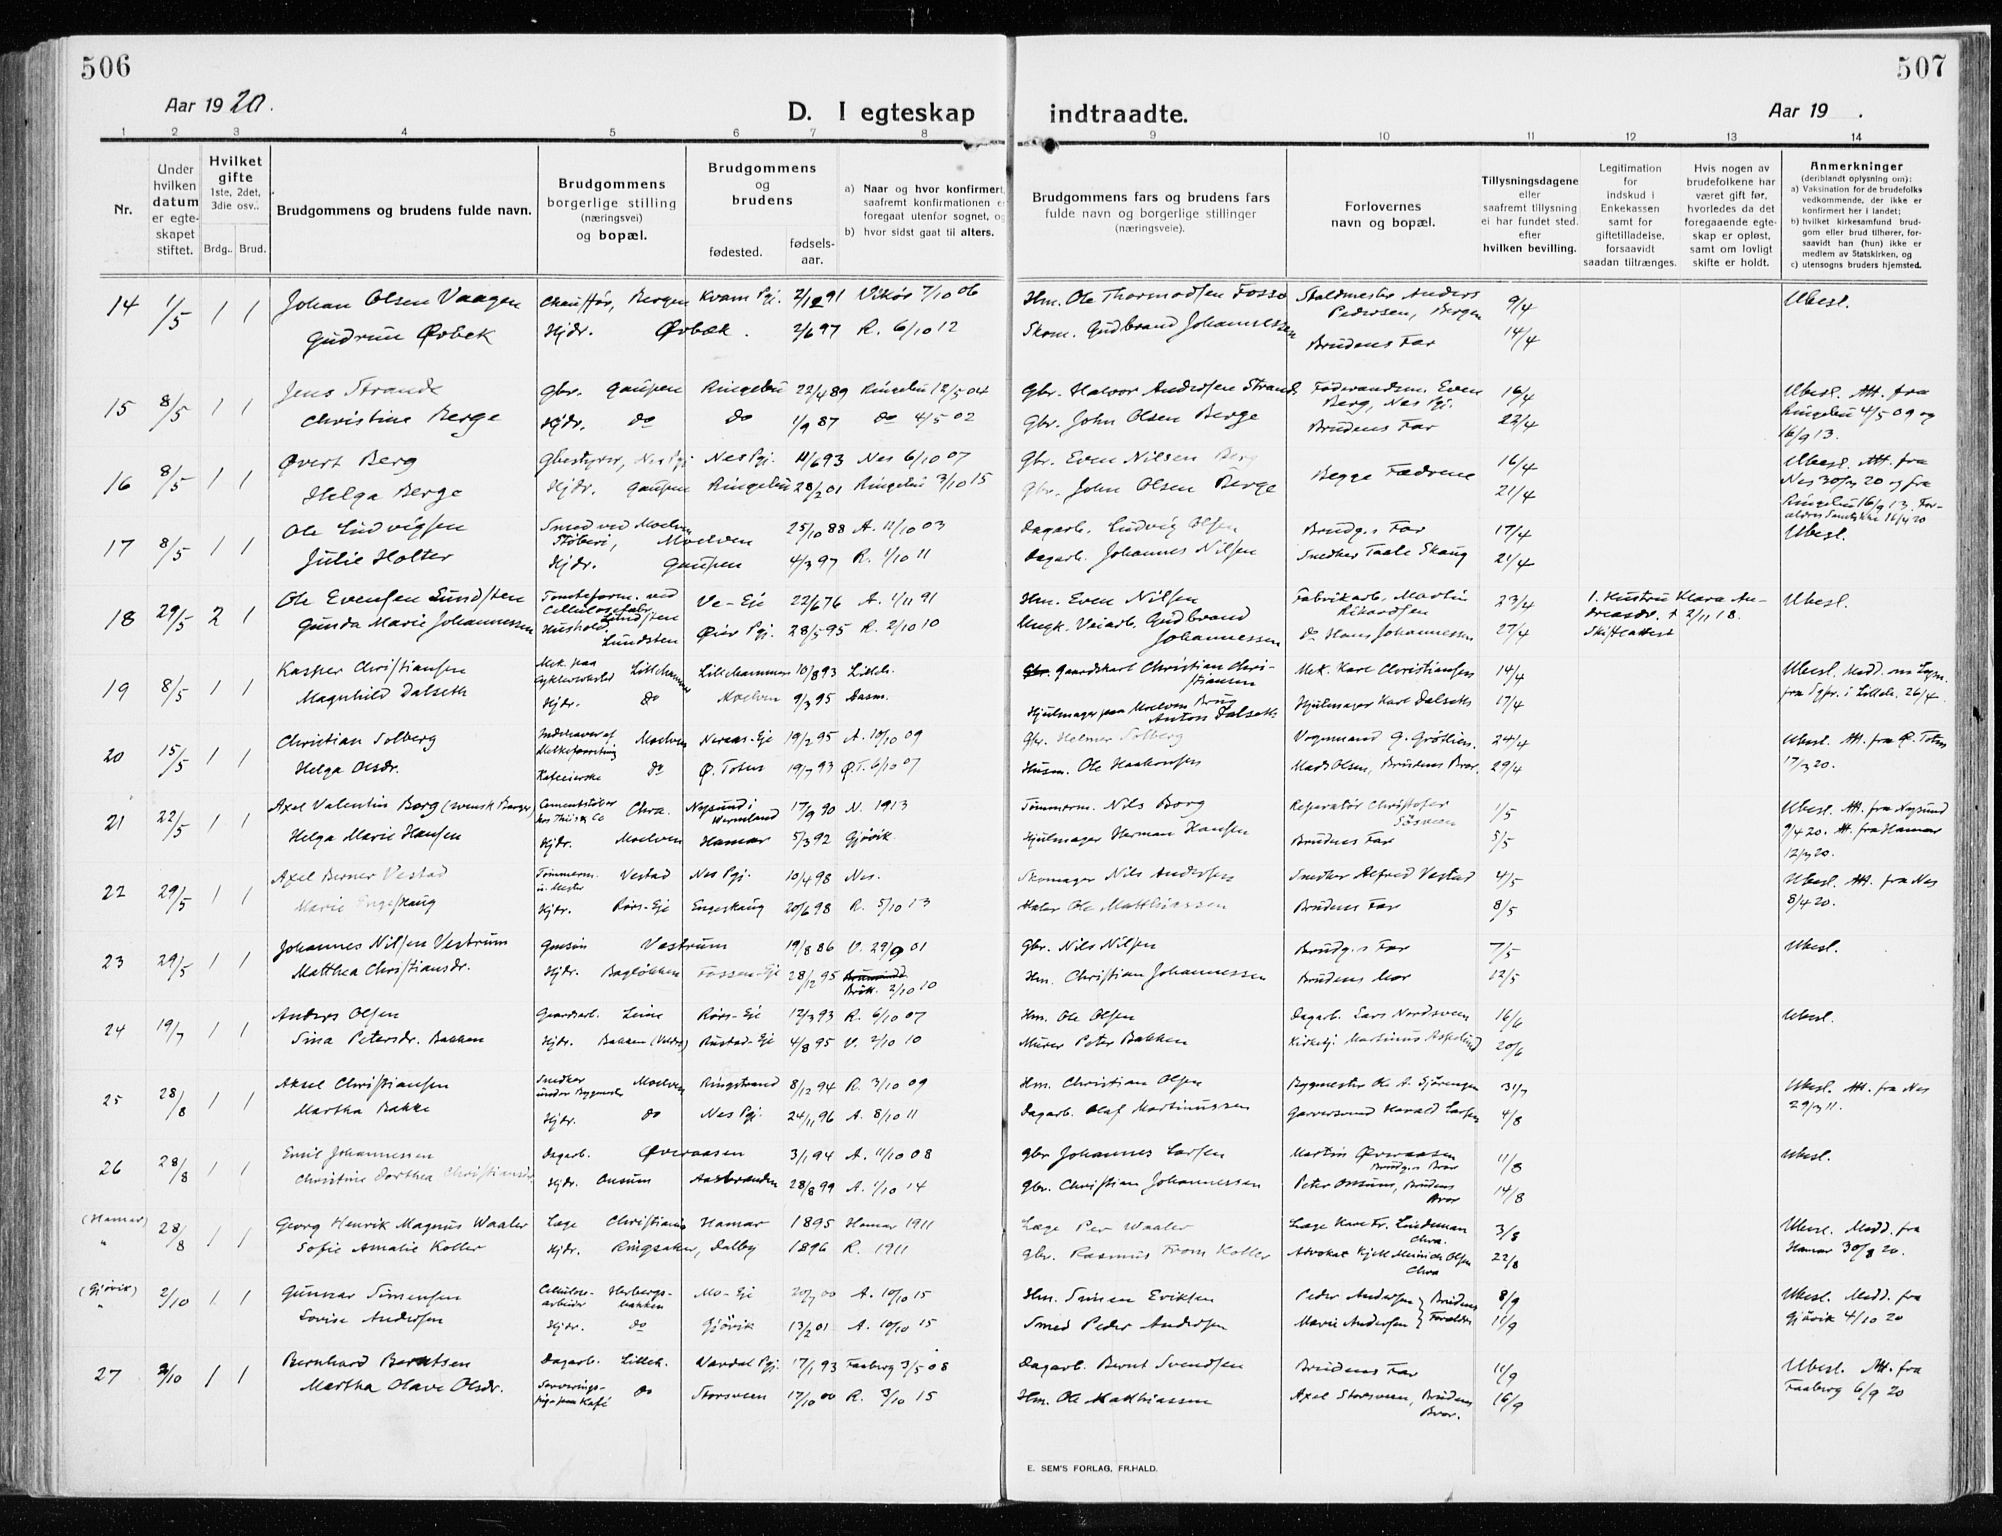 506
507
Aar 1920.
D. I egteskap indtraadte.
Aar 19 .
1 2 3 4 5 6 7 8 9 10 11 12 13 14
Nr.
Under hvilken datum er egteskapet stiftet.
Hvilket gifte
1ste, 2det, 3die osv..
Brdg.. Brud.
Brudgommens og brudens fulde navn.
Brudgommens borgerlige stilling (næringsvei) og bopæl.
Brudgommens og brudens
fødested.
fødsels-aar.
a) Naar og hvor konfirmert, saafremt konfirmationen er foregaat utenfor sognet, og
b) hvor sidst gaat til alters.
Brudgommens fars og brudens fars fulde navn og borgerlige stillinger (næringsveie).
Forlovernes navn og bopæl.
Tillysningsdagene eller saafremt tillysning ei har fundet sted. efter hvilken bevilling.
Legitimation for indskud i Enkekassen samt for giftetilladelse, forsaavidt saadan tiltrænges.
Hvis nogen av brudefolkene har været gift før, hvorledes da det foregaaende egteskap er opløst, samt om lovligt skifte er holdt.
Anmerkninger
(deriblandt oplysning om):
a) Vaksination for de brudefolks vedkommende, der ikke er konfirmert her i landet;
b) hvilket kirkesamfund brudgom eller brud tilhører, forsaavidt han (hun) ikke er medlem av Statskirken, og
c) utensogns bruders hjemsted.
14 1/5 1 1 Johan Olsen Vaagen Chauffør, Bergen Kvam Pgj. 2/12 91 Vikør 7/10 06 Hm. Ole Thormodsen Fosse Staldmester Anders Pedersen, Bergen 9/4 Ubesl.
Gudrun Øvbek Hjdr. Øvbæk. 2/6 97 R. 6/10 12 Skom. Gudbrand Johannessen Brudens Far 14/4
15 8/5 1 1 Jens Strande Gbr. Gaupen Ringebu 22/4 89 Ringebu 12/5 04 Gbr. Halvor Andersen Strande Føderaadsm. Even Berg, Nes Pgj. 16/4 Ubesl. Att. fra Ringebu 4/5 09 og 16/9 13.
Christine Berge Hjdr. do do 1/9 87 do 4/5 02 Gbr. John Olsen Berge Brudens Far 22/4
16 8/5 1 1 Øvert Berg Gbestyrer, Nes Pgj. Nes Pgj. 11/6 93 Nes 6/10 07 Gbr. Even Nilsen Berg Begge Fædrene 16/4 Ubesl. Att. fra Nes 30/4 20 og fra Ringebu 16/9 13. Forældres Samtykke 16/4 20
Helga Berge Hjdr. Gaupen Ringebu 28/2 01 Ringebu 3/10 15 Gbr. John Olsen Berge 21/4
17 8/5 1 1 Ole Ludvigsen Smed ved Moelven Støberi, Moelven 25/10 88 A. 11/10 03 Dagarb. Ludvig Olsen Brudg.s Far 17/4 Ubesl.
Julie Holter Hjdr. Gaupen 4/3 97 R. 1/10 11 Dagarb. Johannes Nilsen Snedker Taale Skaug 21/4
18 29/5 2 1 Ole Evensen Lundsten Tomteform. ved Cellulosefabr. Lundsten Ve-Eje 22/6 76 A. 1/11 91 Hm. Even Nilsen Fabrikarb. Martin Rikardsen 23/4 1. Hustru Klara Andreasdr. † 2/11 18. Skifteattest Ubesl.
Gunda Marie Johannessen Hushold. Lundsten Øier Pgj. 28/5 95 R. 2/10 10 Ungk. Veiarb. Gudbrand Johannessen do Hans Johannessen 27/4
19 8/5 1 1 Kasper Christiansen Mek. paa Cykleverksted Lillehammer Lillehammer 10/8 93 Lilleh. Gaardskarl Christian Christiansen Mek. Karl Christiansen 14/4 Ubesl. Medd. om Lysn. fra Sgpr. i Lilleh. 26/4
Magnhild Dalseth Hjdr. do Moelven 9/3 95 Aasm. Hjulmager paa Moelven Brug Anton Dalseth Hjulmager Karl Dalseth 17/4
20 15/5 1 1 Christian Solberg Indehaver af Melkeforretning Moelven Neraas-Eje 19/2 95 A. 10/10 09 Gbr. Helmer Solberg Vognmand G. Grötlien. 24/4 Ubesl. Att. fra Ø. Toten 17/3 20.
Helga Olsdr. Kafeeierske do Ø. Toten 19/7 93 Ø.T. 6/10 07 Husm. Ole Haakonsen Mads Olsen, Brudens Bror. 29/4
21 22/5 1 1 Axel Valentin Borg (svensk Borger) Cementstöber hos Thiis & Co Chra. Nysund i Wermland 17/9 90 N. 1913 Tömmerm. Nils Borg Reparatør Christofer Sösveen 1/5 Ubesl. Att. fra Nysund 9/4 20. Att. fra Hamar 12/4 20.
Helga Marie Hansen Hjdr. Moelven Hamar 5/3 92 Gjøvik Hjulmager Herman Hansen Brudens Far 5/5
22 29/5 1 1 Axel Berner Vestad Tömmerm. Vestad Nes Pgj. 10/4 98 Nes. Skomager Nils Andersen Snedker Alfred Vestad 4/5 Ubesl. Att. fra Nes 8/4 20.
Marie Engeskaug Hjdr. Rørs-Eje Engeskaug 20/6 98 R. 5/10 13 Maler Ole Matthiassen Brudens Far 8/5
23 29/5 1 1 Johannes Nilsen Vestrum Gmsön Vestrum 19/8 86 V. 29/9 01 Gbr. Nils Nilsen Brudg.s Far 7/5 Ubesl.
Matthea Christiansdr. Hjdr. Bagløkken Fossen-Eje 28/12 95 Bröt. 2/10 10 Hm. Christian Johannessen Brudens Mor 12/5
24 19/7 1 1 Anders Olsen Gaardsarb. Leine Rörs-Eje 12/3 93 R. 6/10 07 Hm. Ole Olsen Dagarb. Lars Nordsveen 16/6 Ubesl.
Sina Petersdr. Bakken Hjdr. Bakken (Veldre) Rustad-Eje 4/8 95 V. 2/10 10 Murer Peter Bakken Kirketj. Martinus Aspelund 20/6
25 28/8 1 1 Aksel Christiansen Snedker under Bygmester Moelven Ringstrand 8/12 94 R. 3/10 09 Hm. Christian Olsen Bygmester Ole A. Sjörengen 31/7 Ubesl. Att. fra Nes 29/3 11.
Martha Bakke Hjdr. do Nes Pgj. 24/11 96 A. 8/10 11 Dagarb. Olaf Martinussen Garversvend Harald Larsen 4/8
26 28/8 1 1 Emil Johannessen Dagarb. Øveraasen 3/1 94 A. 11/10 08 Gbr Johannes Larsen Martin Øveraasen Brudg.s Bror 11/8 Ubesl.
Christine Dorthea Christiansdr. Hjdr. Onsum Aasbranden 28/8 99 A. 1/10 14 Gbr. Christian Johannessen Peter Onsum, Brudens Bror 14/8
(Hamar) " 28/8 1 1 Georg Henrik Magnus Waaler Læge Christiania Hamar 1895 Hamar 1911 Læge Per Waaler Læge Kare Fr. Lindeman Chra. 3/8 Ubesl. Medd. fra Hamar 30/8 20.
Sofie Amalie Koller Hjdr. Ringsaker, Dalby 1896 R. 1911 Gbr. Rasmus From Koller Advokat Kjell Meinich Olsen Chra 22/8
(Gjøvik) " 2/10 1 1 Gunnar Simensen Cellulosearbeider Herbergsbakken Mo-Eje 20/7 00 A. 10/10 15 Hm. Simen Eriksen Peder Andersen } Brudens 8/9 Ubesl. Medd. fra Gjövik 4/10 20
Lovise Andersen Hjdr. do Gjövik 13/2 01 A. 10/10 15 Smed Peder Andersen Marie Andersen } Forældre 11/9
27 2/10 1 1 Bernhard Berntsen Dagarb. Lilleh. Vardal Pgj. 17/1 93 Faaberg 3/5 08 Dagarb. Bernt Svendsen Brudens Far 11/9 Ubesl. Att. fra Faaberg 6/9 20
Martha Olave Olsdr. Serveringspige paa Kafé do Storsveen 17/10 00 R. 3/10 15 Hm. Ole Matthiassen Axel Storsveen, Brudens Bror. 16/9
E. SEM'S FORLAG, FR.HALD.